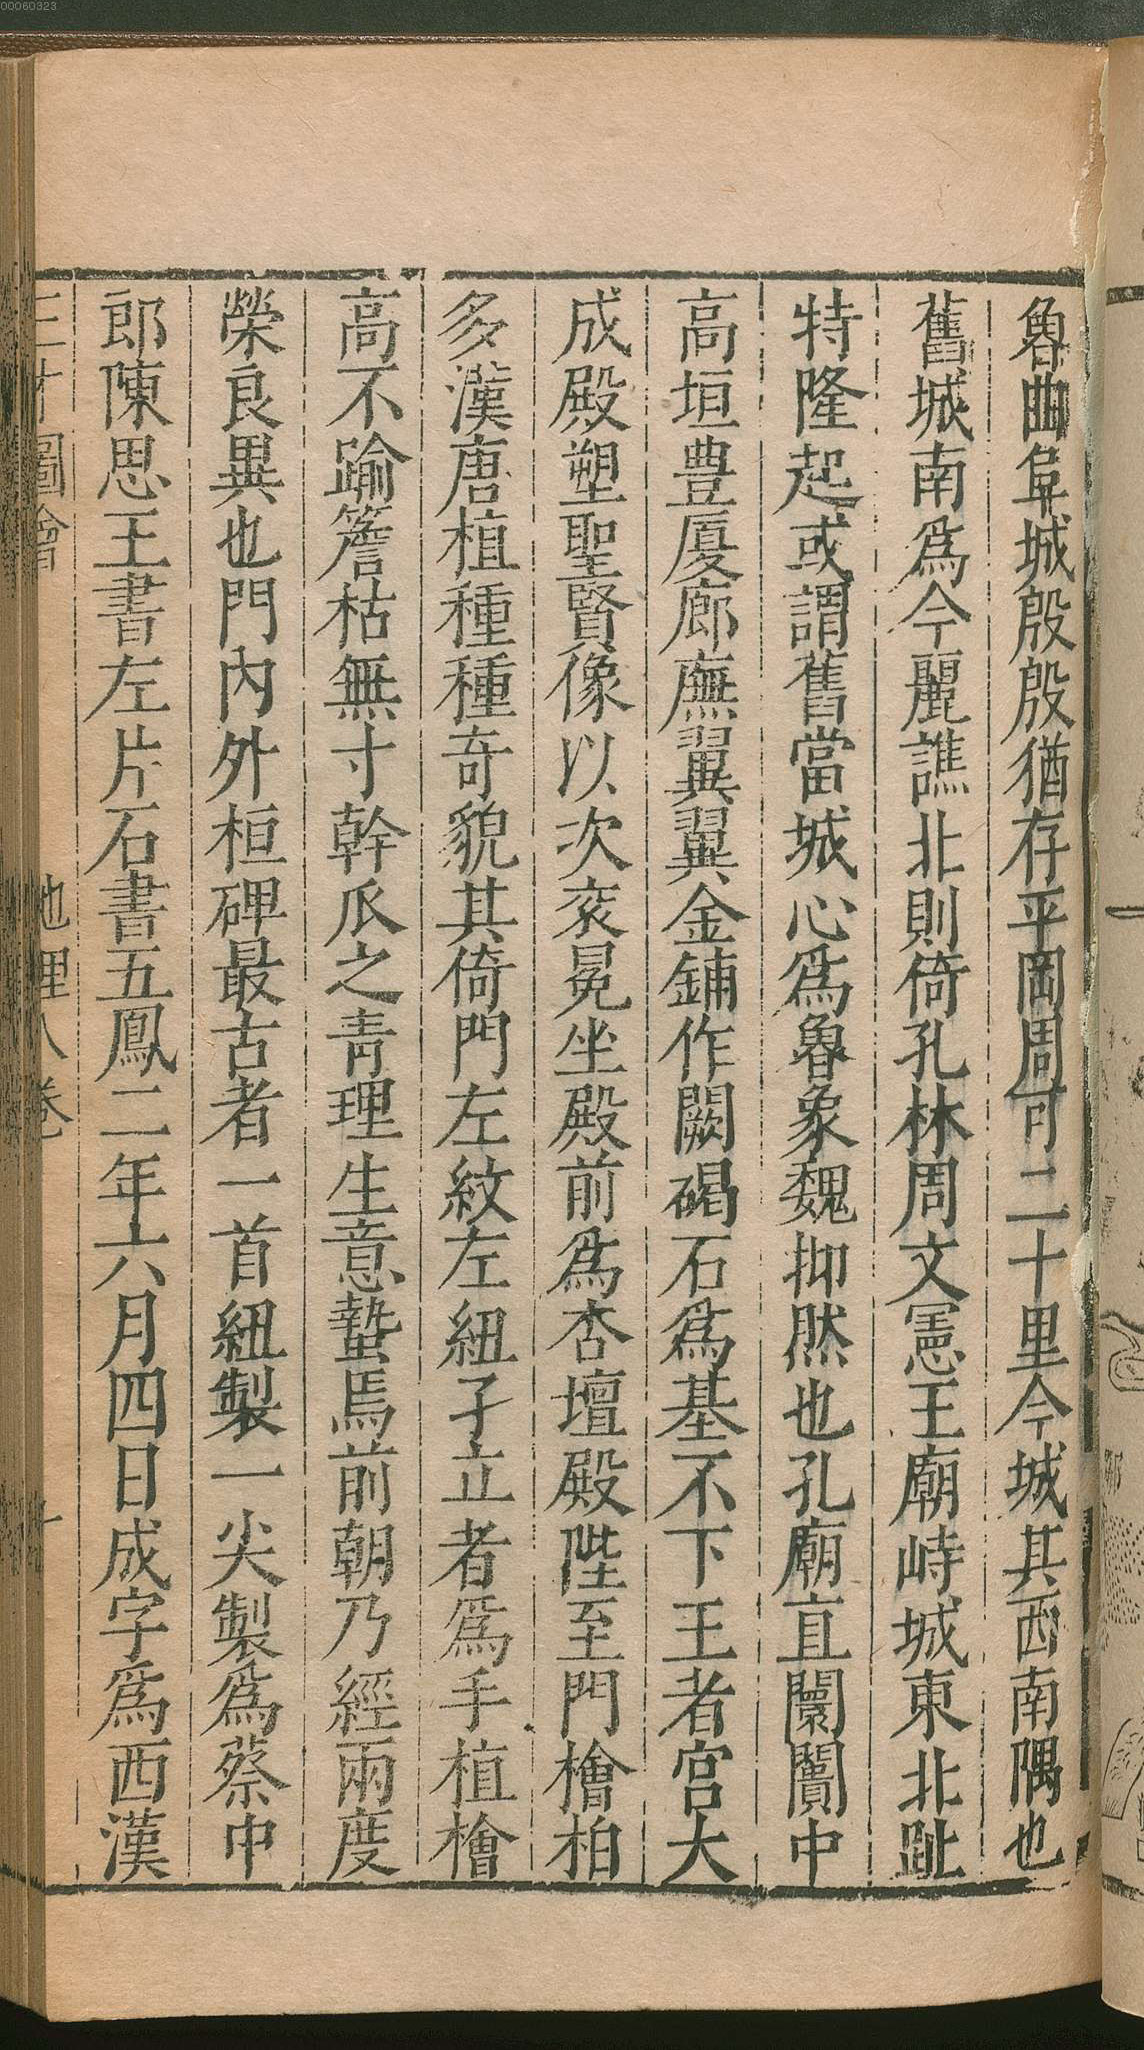 00060323
魯曲阜城殷殷猶存平岡周可二十里今城其西南隅也
舊城南爲今麗譙北則倚孔林周文憲王廟峙城東北趾
特隆起或謂舊當城心爲魯象魏抑然也孔廟直闤闠中
高垣豊廈廊廡翼翼金鋪作闕碣石爲基不下王者宮大
成殿塑聖賢像以次衮冕坐殿前爲杏壇殿陛至門檜柏
多漢唐植種種奇貌其倚門左紋左紐孑立者爲手植檜
高不踰簷枯無寸幹爪之青理生意蟄焉前朝乃經兩度
榮良異也門內外桓碑最古者一首紐製一尖製爲蔡中
郎陳思王書左片石書五鳳二年六月四日成字爲西漢
三才圖會 地理八卷